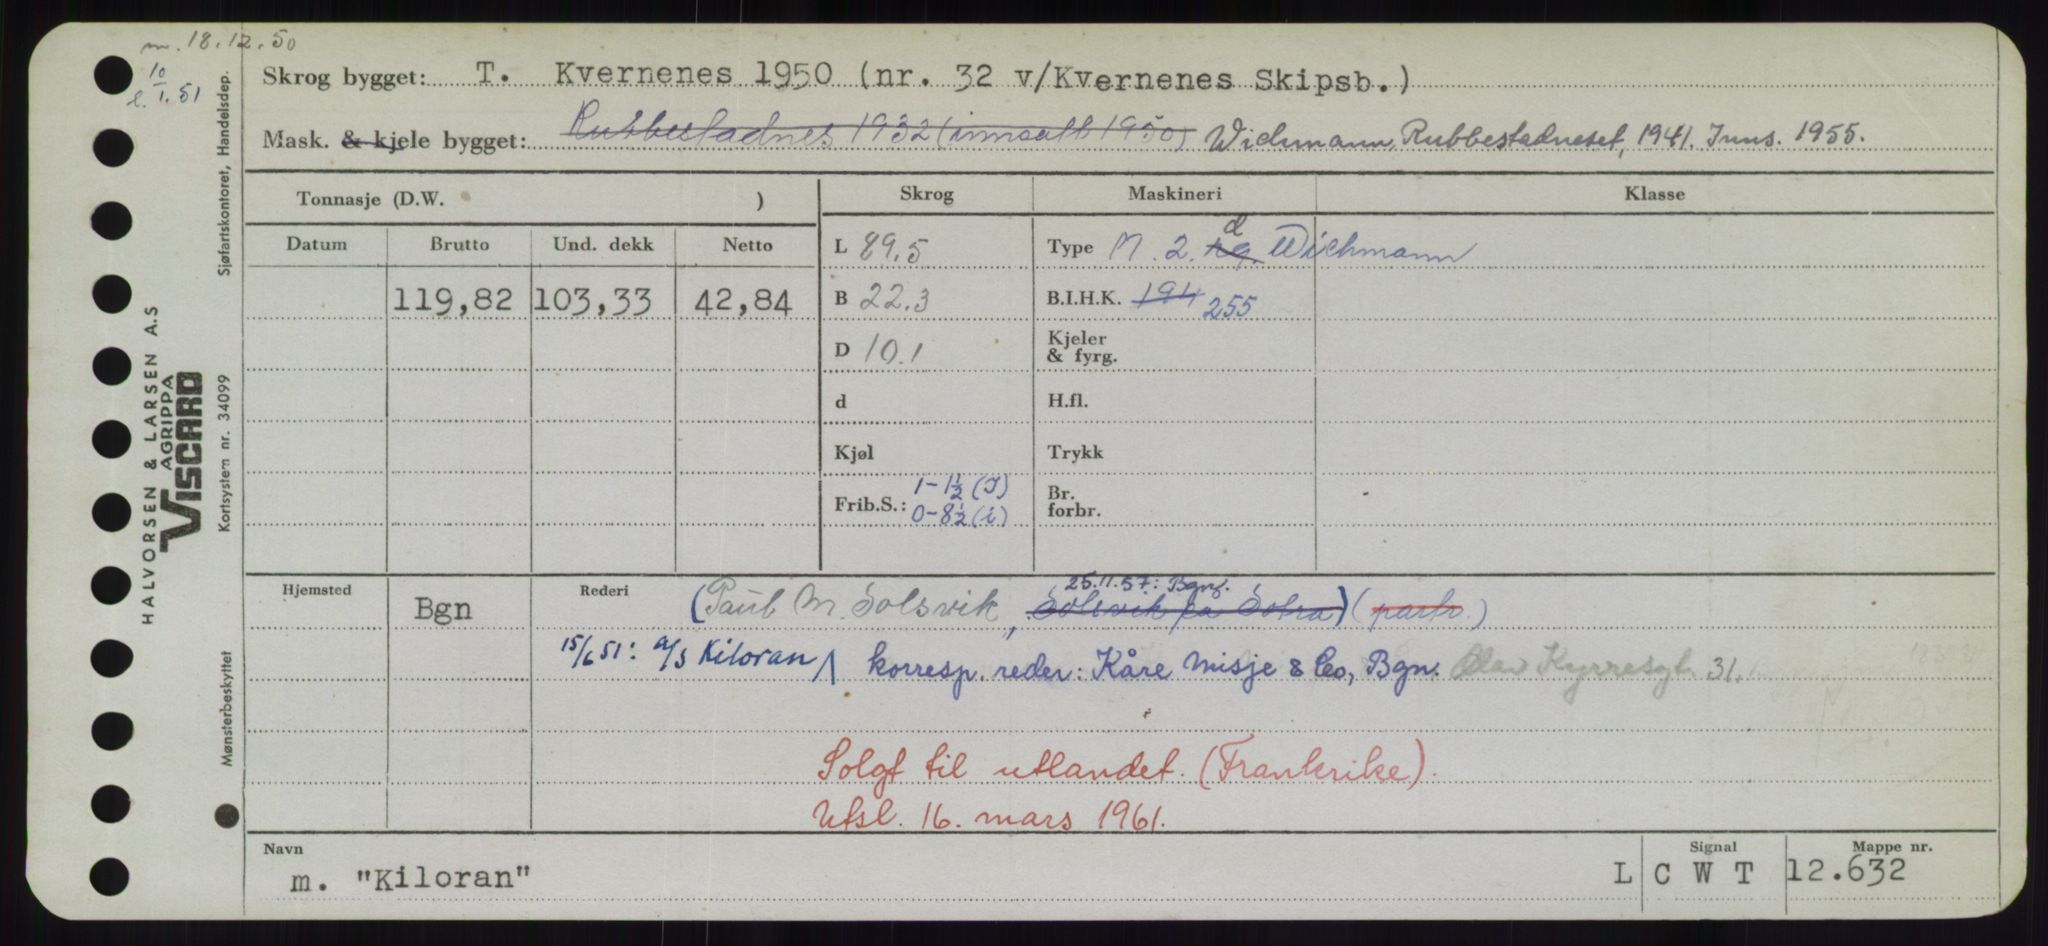 m. 18.12.50
10/1.51
Skrog bygget: T. Kvernenes 1950 (nr. 32 v/Kvernenes Skipsb.)
Mask. & kjele bygget: Rubbestadnes 1932 (innsatt 1950) Wichmann, Rubbestadneset, 1941. Inns. 1955.
Tonnasje (D.W. )
Skrog
Maskineri
Klasse
Datum Brutto Und. dekk Netto
L 89,5
Type M. 2. d Wichmann
119,82 103,33 42,84
B 22,3
B.I.H.K. 194 255
D 10.1
Kjeler & fyrg.
d
H.fl.
Kjøl
Trykk
Frib.S.: 1-1½ (S)
0-8½ (i)
Br. forbr.
Hjemsted
Bgn
Rederi
25.11.57: Bgn.
(Paul M. Solsvik, Solsvik på Sotra) (partr.)
15/6 51: A/S Kiloran /\ korresp. reder: Kåre Misje & Co, Bgn. Olav Kyrresgt. 31.
Solgt til utlandet. (Frankrike).
Utsl. 16. mars 1961.
Navn
m. "Kiloran"
Signal
L C W T
Mappe nr.
12.632
Sjøfartskontoret, Handelsdep.
Kortsystem nr. 34099
Mønsterbeskyttet
HALVORSEN & LARSEN A.S
AGRIPPA
VISCARD